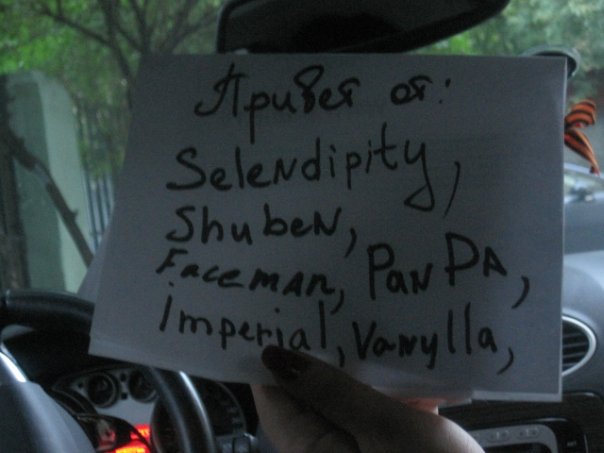 Привет от:
Selendipity,
Shuben,
Faceman, PanDA,
imperial, Vanylla,